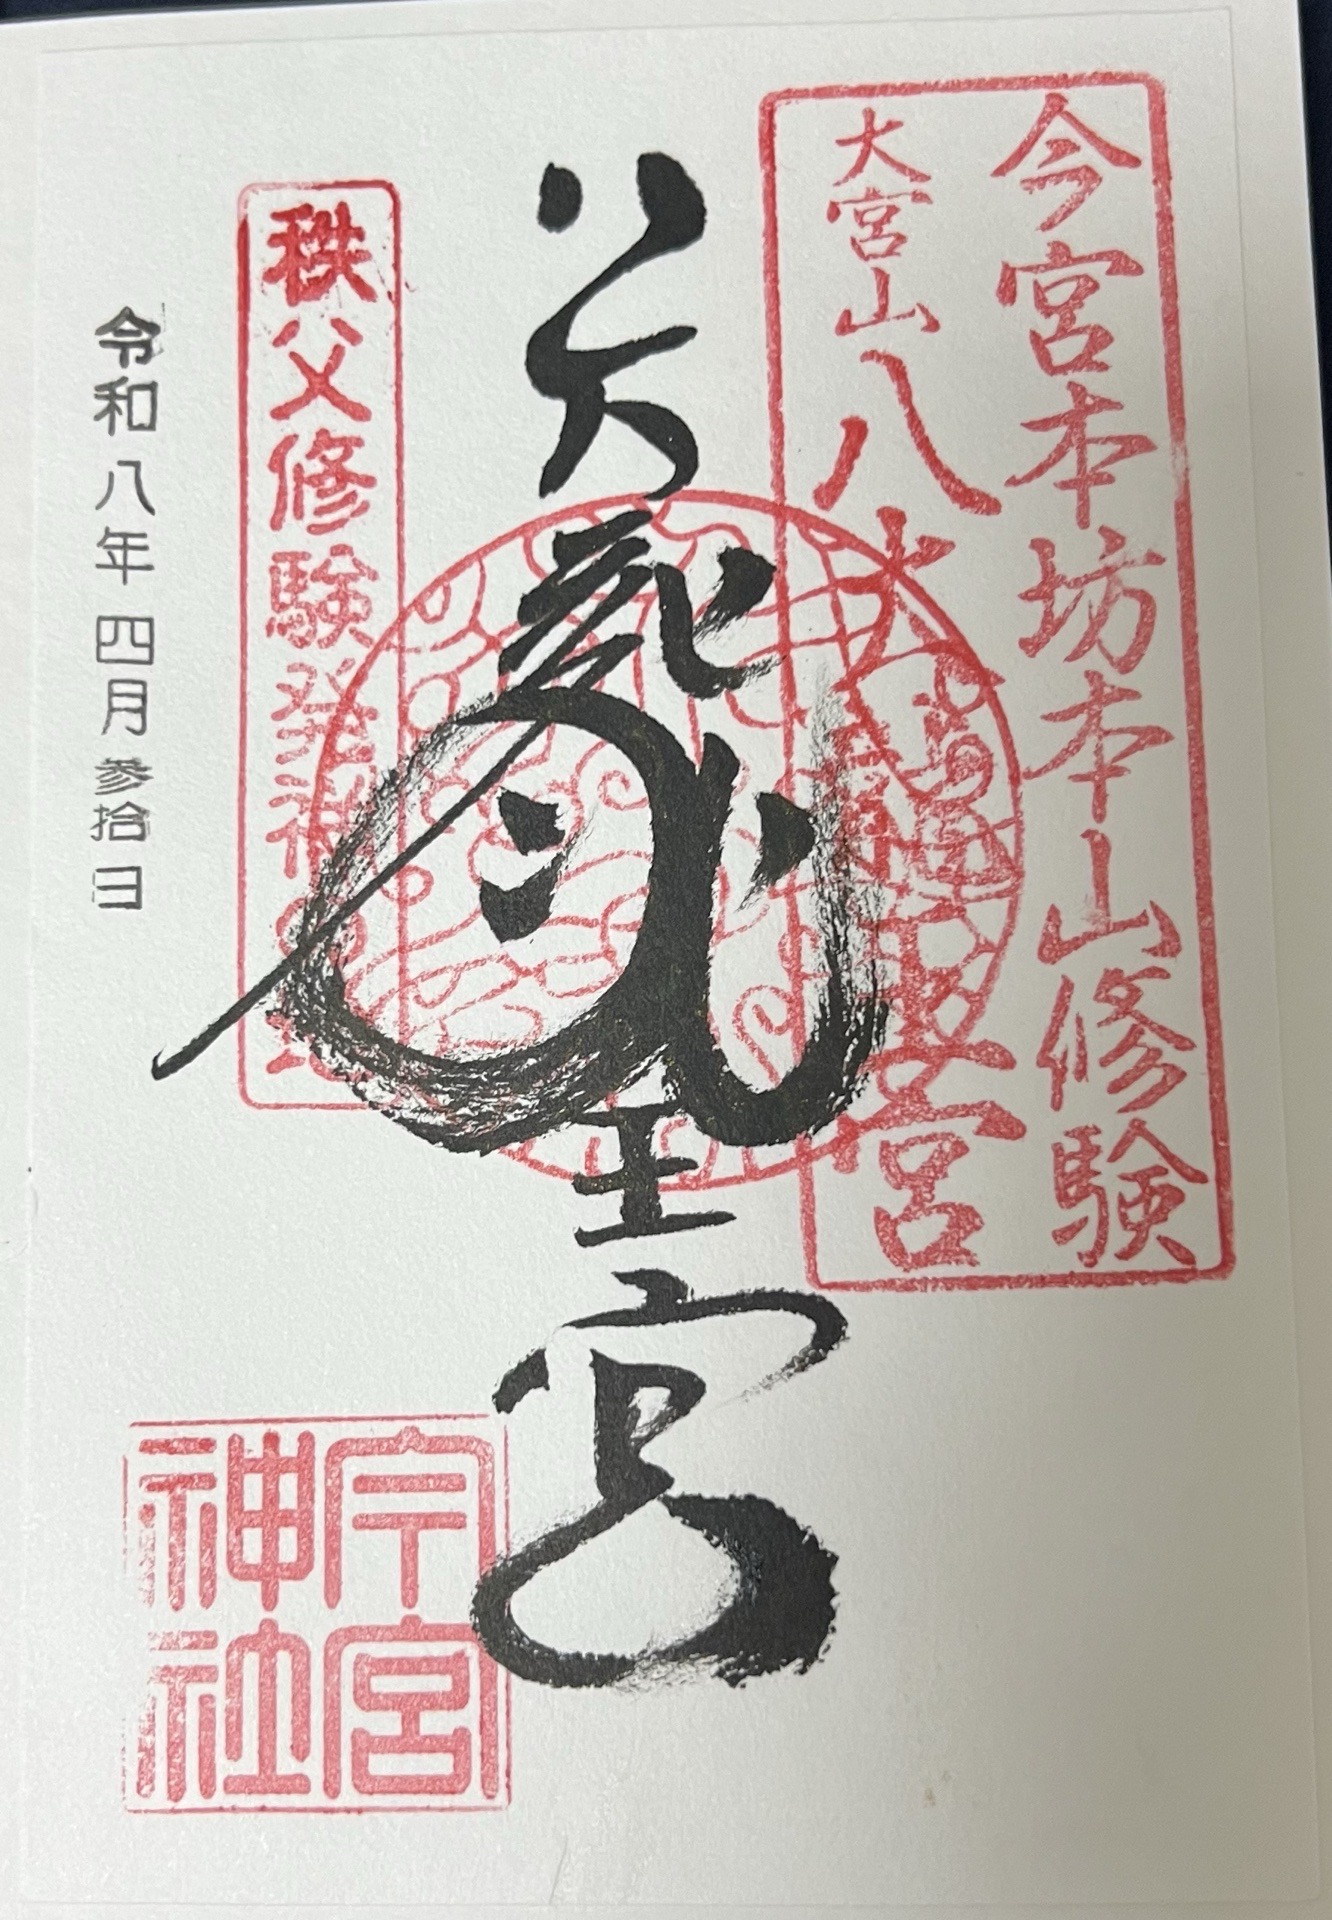 今宮本坊本山修験
大宮山八大龍王宮
八大龍王宮
秩父修験発祥の地
令和八年四月参拾日
今宮
神社